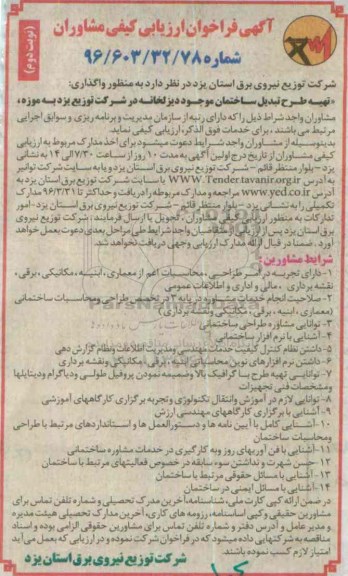 آگهی فراخوان ارزیابی کیفی مشاوران
شماره ۹۶/۶۰۳/۳۲/۷۸
(نوبت دوم)
شرکت توزیع نیروی برق استان یزد در نظر دارد به منظور واگذاری:
«تهیه طرح تبدیل ساختمان موجود دیزلخانه در شرکت توزیع یزد به موزه»
مشاوران واجد شرایط ذیل را که دارای رتبه از سازمان مدیریت و برنامه ریزی و سوابق اجرایی
مرتبط می باشند، برای خدمات فوق الذکر، ارزیابی کیفی نماید.
بدینوسیله از مشاوران واجد شرایط دعوت میشود برای اخذ مدارک مربوط به ارزیابی
کیفی مشاوران از تاریخ درج اولین آگهی به مدت ۱۰ روز از ساعت ۷/۳۰ الی ۱۴ به نشانی
یزد - بلوار منتظر قائم - شرکت توزیع نیروی برق استان یزد و یا به سایت شرکت توانیر
به آدرس WWW.Tender.tavanir.org.ir یا سایت شرکت توزیع برق استان یزد به
آدرس www.yed.co.ir مراجعه و مدارک مربوطه را دریافت و حداکثر تا ۹۶/۳/۳۱ مدارک
تکمیلی را به نشانی یزد - بلوار منتظر قائم - شرکت توزیع نیروی برق استان یزد - امور
تدارکات به منظور ارزیابی کیفی مشاوران، تحویل یا ارسال فرمایند. شرکت توزیع نیروی
برق استان یزد پس از ارزیابی از متقاضیان واجد شرایط طی مراحل بعدی دعوت بعمل خواهد
آورد. ضمنا در قبال ارائه مدارک ارزیابی وجهی دریافت نخواهد شد.
شرایط مشاورین:
۱- دارای تجربه در امر طراحی، محاسبات اعم از معماری، ابنیه، مکانیکی، برقی،
نقشه برداری، مالی و اداری و اطلاعات عمومی
۲- صلاحیت انجام خدمات مشاوره در پایه ۳ در تخصص طراحی و محاسبات ساختمانی
(معماری، ابنیه، برقی، مکانیکی و نقشه برداری)
۳- توانایی مشاوره طراحی ساختمانی
۴- آشنایی با نرم افزار ساختمانی
۵- داشتن نظام کنترل کیفیت خدمات مهندسی و مدیریت اطلاعات و نظام گزارش دهی
۶- داشتن نرم افزارهای نوین محاسباتی ابنیه، برقی، مکانیکی و نقشه برداری
۷- توانایی تهیه طرح با گرافیک بالا و ضمیمه نمودن پروفیل طولی و دیاگرام و دیتایلها
و مشخصات فنی تجهیزات
۸- توانایی لازم در آموزش و انتقال تکنولوژی و تجربه برگزاری کارگاههای آموزشی
۹- آشنایی با برگزاری کارگاههای مهندسی ارزش
۱۰- آشنایی کامل با آیین نامه ها و دستورالعمل ها و استانداردهای مرتبط با طراحی
ومحاسبات ساختمان
۱۱- آشنایی با فن آوریهای روز و به کارگیری در خدمات مشاوره ساختمانی
۱۲- حسن شهرت و نداشتن سوء سابقه در خصوص فعالیتهای مرتبط با ساختمان
۱۳- آشنایی با مسائل حقوقی مرتبط با ساختمان
۱۴- آشنایی با مسائل ایمنی در ساختمان
در ضمن ارائه کپی کارت ملی، شناسنامه، آخرین مدرک تحصیلی و شماره تلفن تماس برای
مشاورین حقیقی و کپی اساسنامه، رزومه های کاری، آخرین مدارک تحصیلی هیئت مدیره
و مدیر عامل و آدرس دفتر و شماره تلفن تماس برای مشاورین حقوقی الزامی بوده و اسناد
مناقصه به شرکتهایی داده میشود که در فراخوان شرکت نموده و در ارزیابی که بعمل می آید
امتیاز لازم کسب نموده باشند.
شرکت توزیع نیروی برق استان یزد